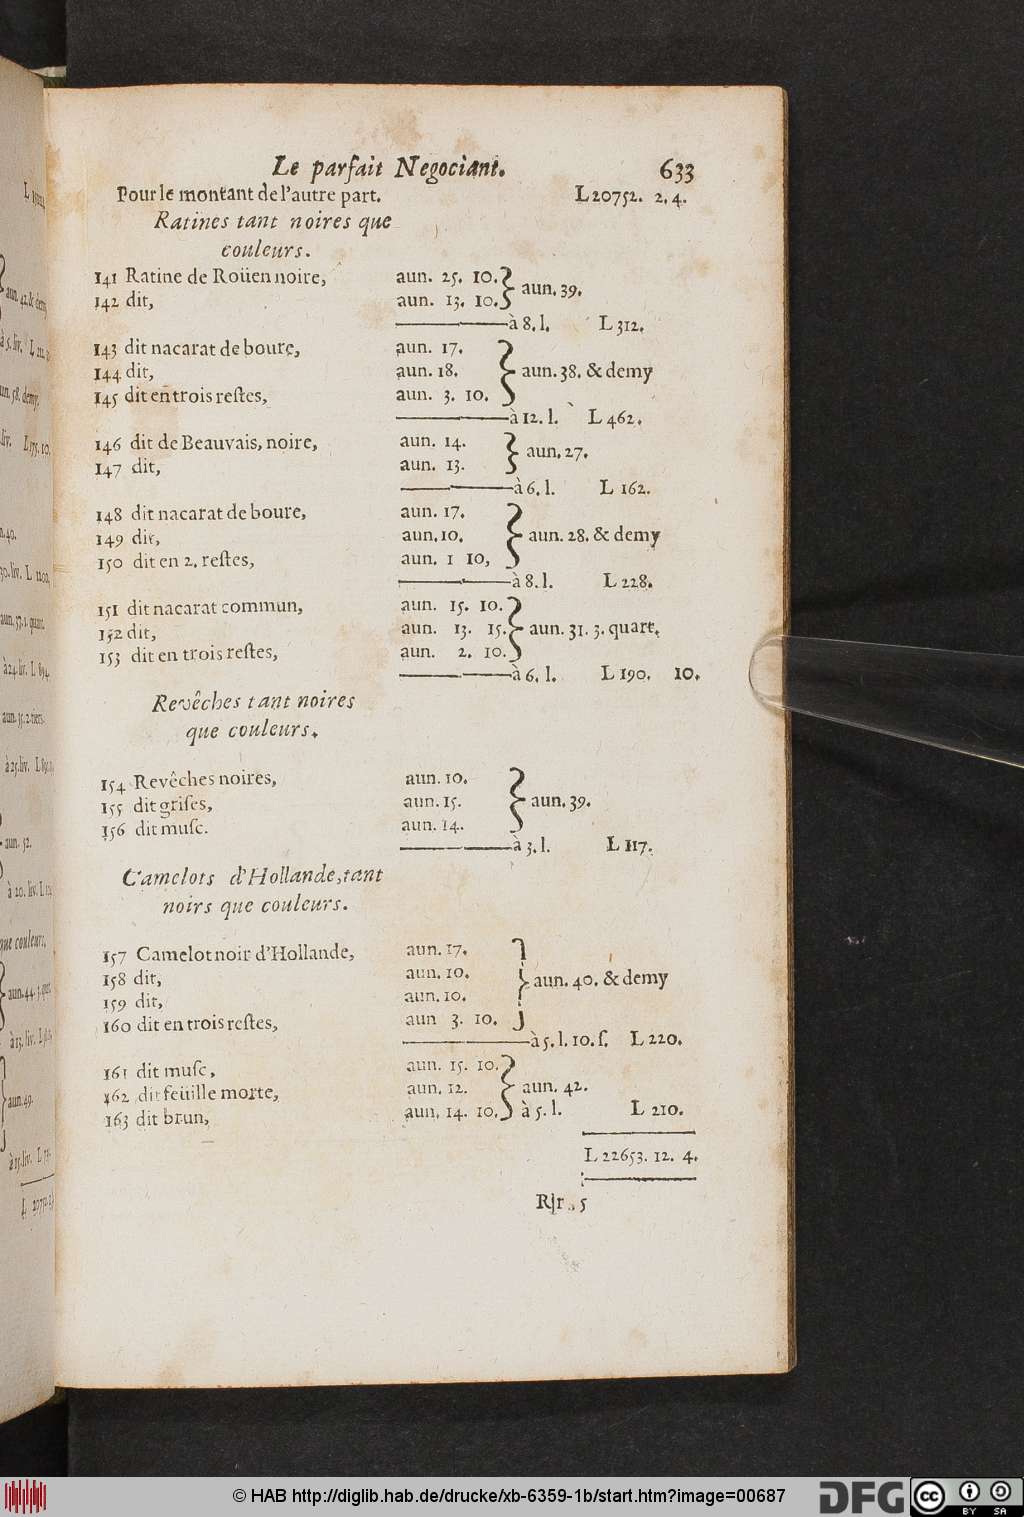 Le parfait Negociant. 633
Pour le montant de l'autre part. L 20752. 2. 4.
Ratines tant noires que
couleurs.
141 Ratine de Roüen noire, aun. 25. 10. } aun. 39.
142 dit, aun. 13. 10.
à 8. l. L 312.
143 dit nacarat de boure, aun. 17.
144 dit, aun. 18. } aun. 38. & demy
145 dit en trois reſtes, aun. 3. 10.
à 12. l. L 462.
146 dit de Beauvais, noire, aun. 14. } aun. 27.
147 dit, aun. 13.
à 6. l. L 162.
148 dit nacarat de boure, aun. 17.
149 dit, aun. 10. } aun. 28. & demy
150 dit en 2. reſtes, aun. 1 10,
à 8. l. L 228.
151 dit nacarat commun, aun. 15. 10.
152 dit, aun. 13. 15. } aun. 31. 3. quart.
153 dit en trois reſtes, aun. 2. 10.
à 6. l. L 190. 10.
Revêches tant noires
que couleurs.
154 Revêches noires, aun. 10.
155 dit griſes, aun. 15. } aun. 39.
156 dit muſc. aun. 14.
à 3. l. L 117.
Camelots d'Hollande, tant
noirs que couleurs.
157 Camelot noir d'Hollande, aun. 17.
158 dit, aun. 10. } aun. 40. & demy
159 dit, aun. 10.
160 dit en trois reſtes, aun 3. 10.
à 5. l. 10. ſ. L 220.
161 dit muſc, aun. 15. 10.
162 dit feüille morte, aun. 12. } aun. 42.
163 dit brun, aun. 14. 10. à 5. l. L 210.
L 22653. 12. 4.
Rſr 5
© HAB http://diglib.hab.de/drucke/xb-6359-1b/start.htm?image=00687
DFG
cc BY SA